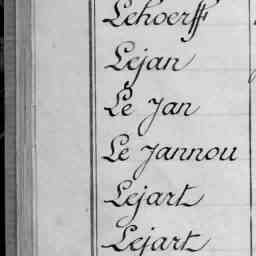 Lehoerff
Lejan
Le Jan
Le Jannou
Lejart
Lejart